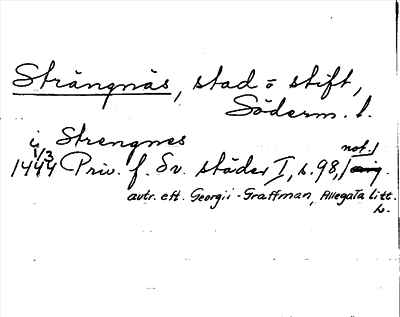 Strängnäs, stad o stift,
Söderm. l.
i Strengnes
1/3
1444 Priv. f. Sv. städer I, s. 98, not.
avtr. eft. Georgii-Graffman, Allegata litt.